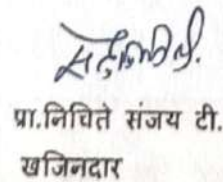 प्रा.निचिते संजय टी.
खजिनदार